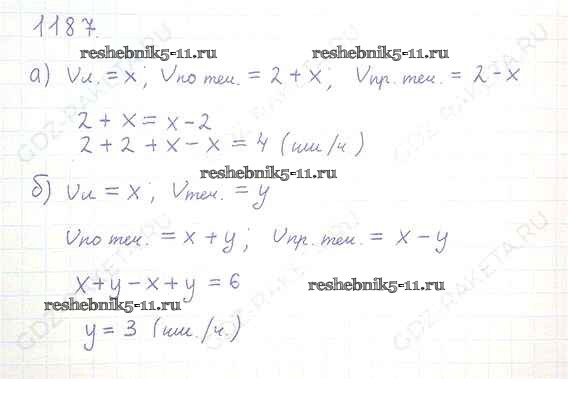 1187.
reshebnik5-11.ru reshebnik5-11.ru
а) Vл. = x; Vпо теч. = 2 + x; Vпр. теч. = 2 - x
2 + x = x - 2
2 + 2 + x - x = 4 (км/ч)
reshebnik5-11.ru
б) Vл = x; Vтеч. = y
Vпо теч. = x + y; Vпр. теч. = x - y
x + y - x + y = 6
reshebnik5-11.ru
reshebnik5-11.ru
y = 3 (км./ч.)
GDZ-RAKETA.RU
GDZ-RAKETA.RU
GDZ-RAKETA.RU
GDZ-RAKETA.RU